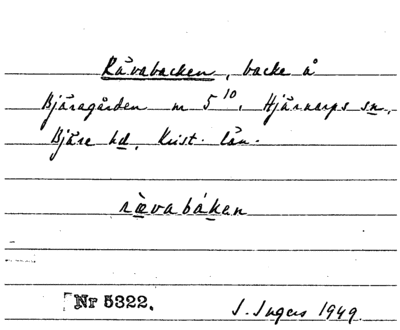 Råvabacken, backe å
Bjäragården nr 5¹⁰, Hjärnarps sn,
Bjäre hd, Krist. län.
rævabáken
Nr 5322.
I. Ingers 1949.